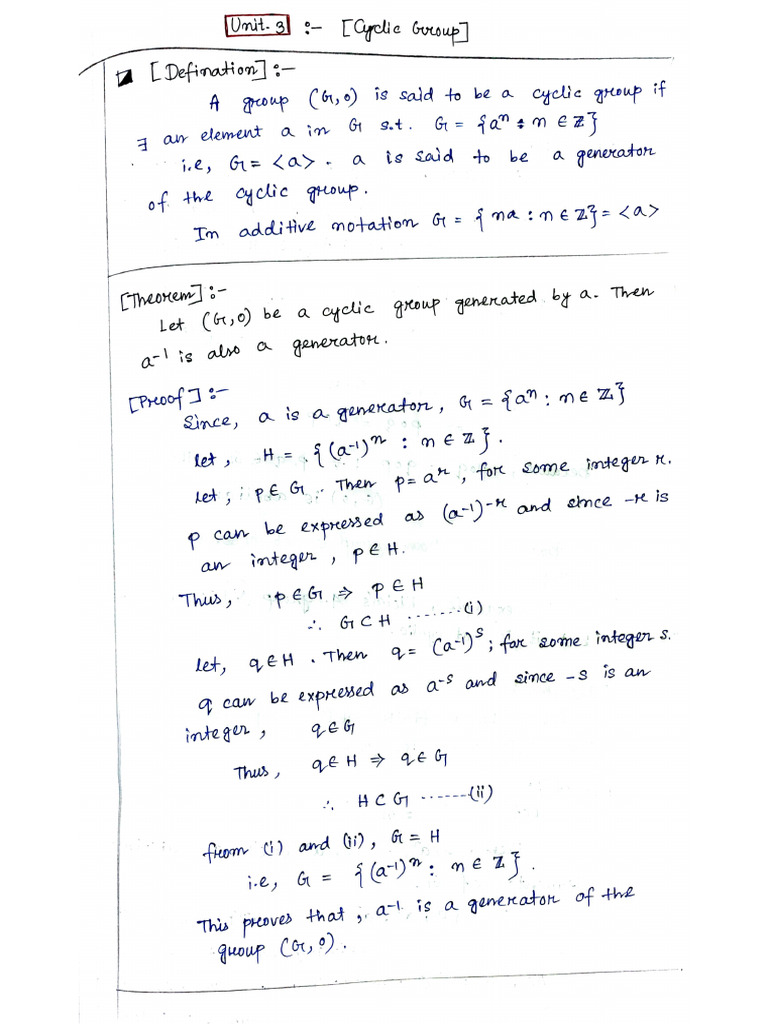 Unit. 3 :- [Cyclic Group]
[Defination] :-
A group (G, o) is said to be a cyclic group if
∃ an element a in G s.t. G = {aⁿ : n ∈ ℤ}
i.e, G = <a>. a is said to be a generator
of the cyclic group.
In additive notation G = {na : n ∈ ℤ} = <a>
[Theorem] :-
Let (G, o) be a cyclic group generated by a. Then
a⁻¹ is also a generator.
[Proof] :-
Since, a is a generator, G = {aⁿ : n ∈ ℤ}
let, H = {(a⁻¹)ⁿ : n ∈ ℤ}.
let, p ∈ G. Then p = aʳ, for some integer r.
p can be expressed as (a⁻¹)⁻ʳ and since -r is
an integer, p ∈ H.
Thus, p ∈ G ⇒ p ∈ H
∴ G ⊂ H .......(i)
let, q ∈ H. Then q = (a⁻¹)ˢ; for some integer s.
q can be expressed as a⁻ˢ and since -s is an
integer, q ∈ G
Thus, q ∈ H ⇒ q ∈ G
∴ H ⊂ G .......(ii)
from (i) and (ii), G = H
i.e, G = {(a⁻¹)ⁿ : n ∈ ℤ}.
This proves that, a⁻¹ is a generator of the
group (G, o).